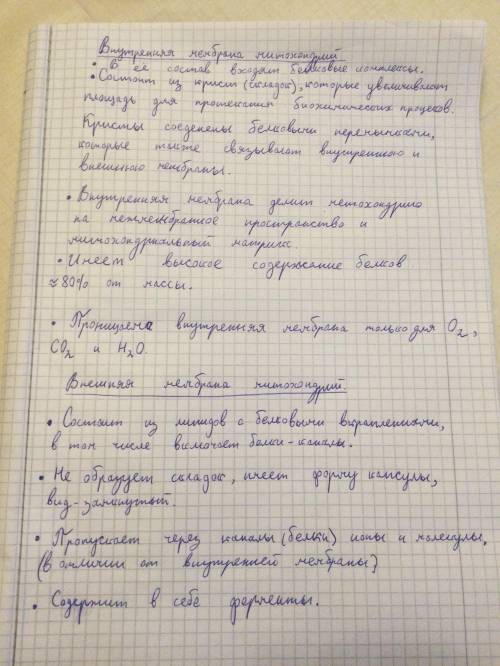 Внутренняя мембрана митохондрий
• В её состав входят белковые комплексы.
• Состоит из крист (складок), которые увеличивают
площадь для протекания биохимических процесов.
Кристы соеденены белковыми перемычками,
которые также связывают внутреннюю и
внешнюю мембраны.
• Внутренняя мембрана делит метохондрию
на межмембранное пространство и
митохондриальный матрикс.
• Имеет высокое содержание белков
≈ 80% от массы.
• Проницаема внутренняя мембрана только для O2,
CO2 и H2O.
Внешняя мембрана митохондрий.
• Состоит из липидов с белковыми вкраплениями,
в том числе включает белки-каналы.
• Не образует складок, имеет форму капсулы,
вид-замкнутый.
• Пропускает через каналы (белки) ионы и молекулы,
(в отличии от внутренней мембраны)
• Содержит в себе ферменты.